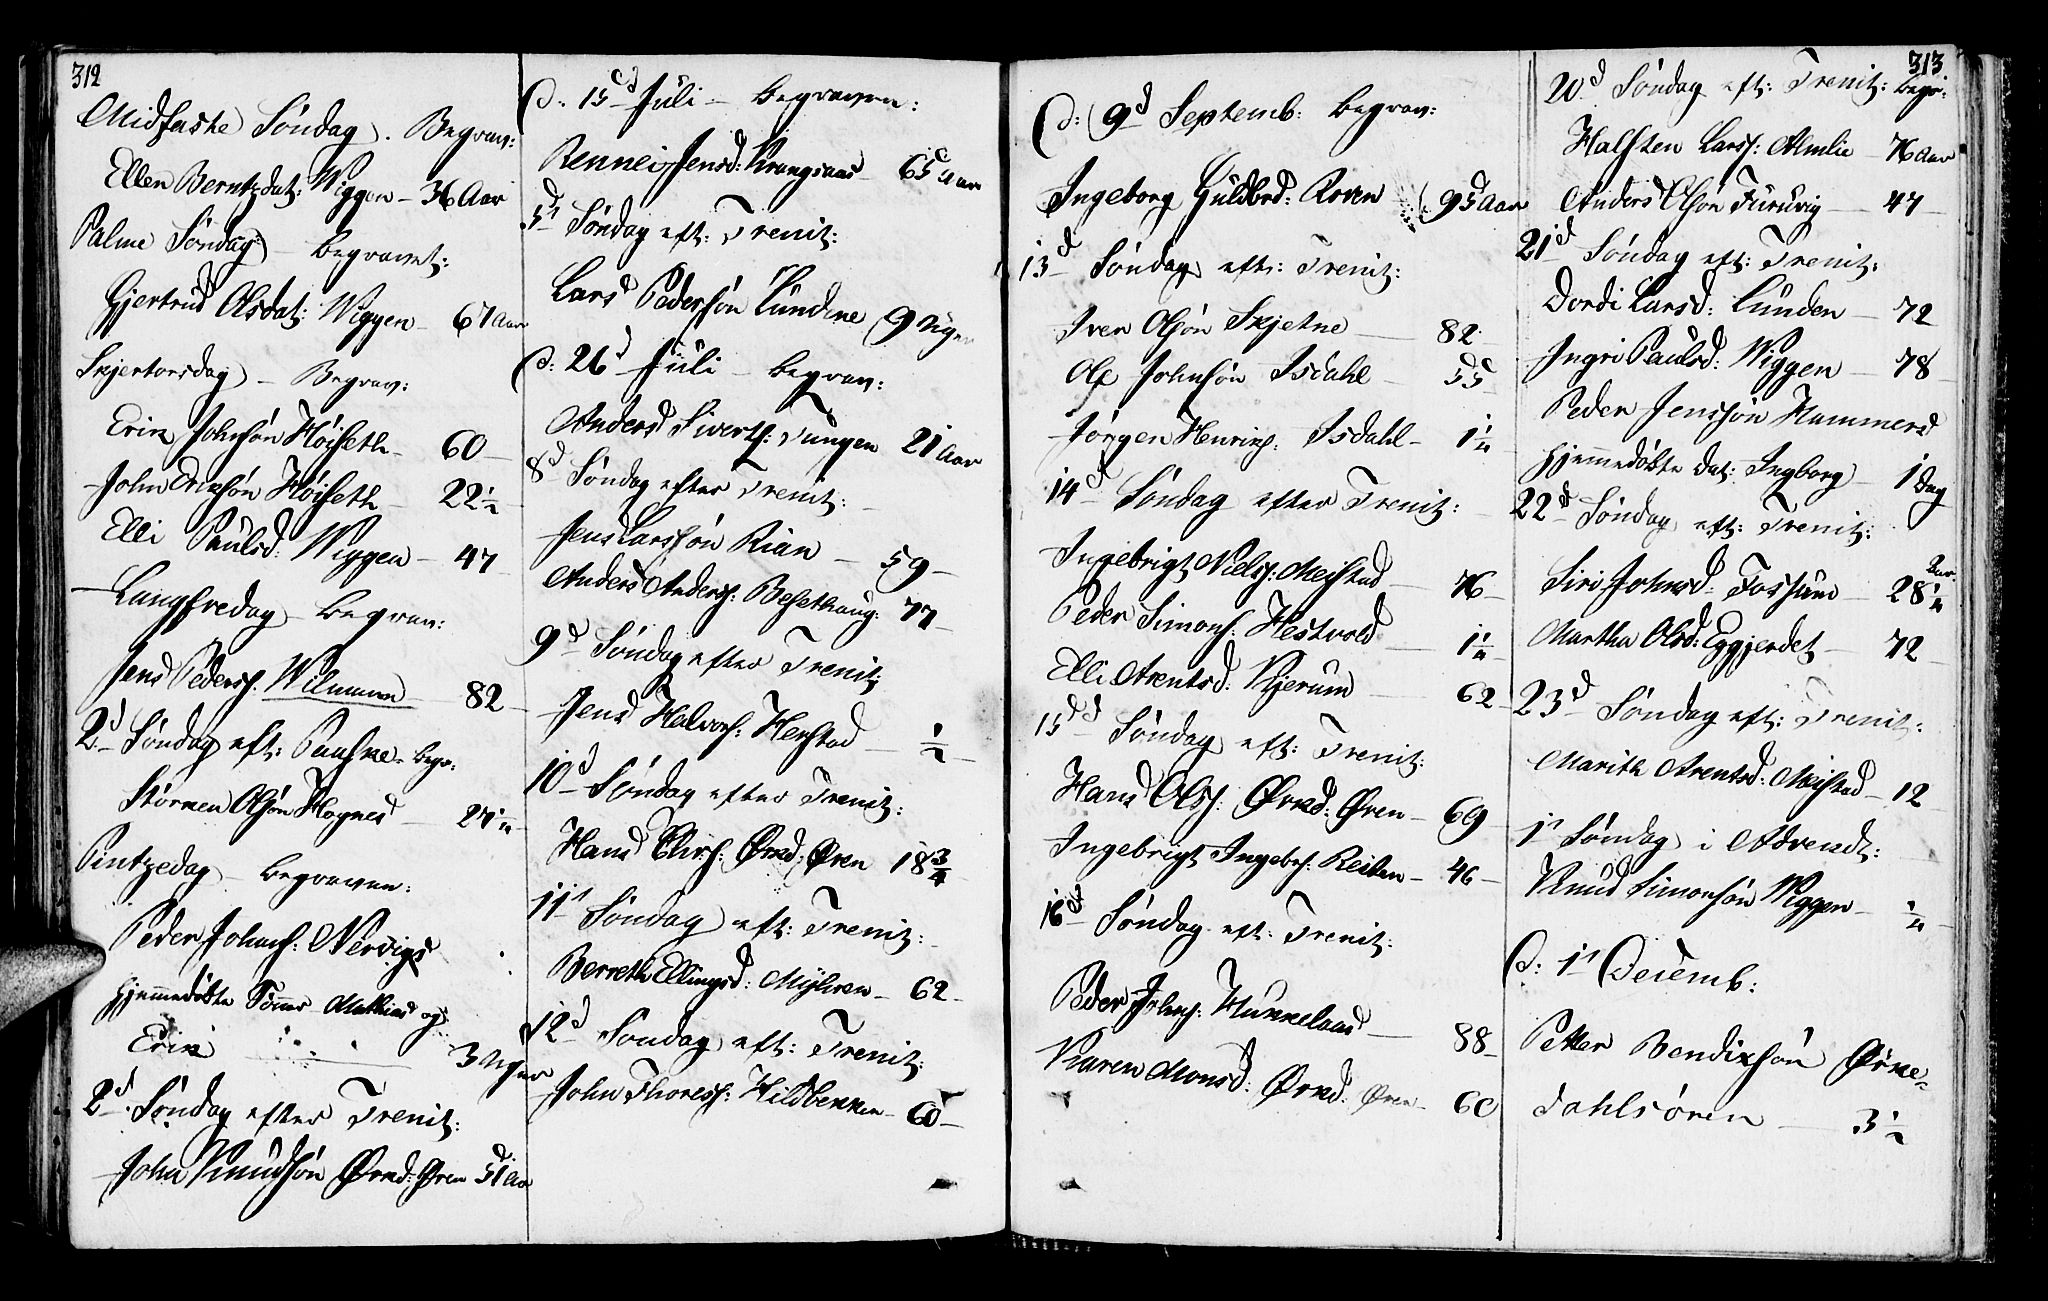 312
Midfaste Søndag. Begrav:
Ellen Berntzdat: Wiggen - 36 Aar
Palme Søndag - begravet:
Gjertrud Olsdat: Wiggen - 67 Aar
Skjertorsdag - Begrav:
Erik Johnsøn Høiseth - 60 -
John Erichsøn Høiseth - 22 1/2
Elli Paulsd: Wiggen - 47 -
Langfredag - begrav:
Jens Peders: Wilmann - 82 -
2d Søndag eft: Paaske - begr:
Størken Olsøn Hognes - 27 1/4
Pintzedag - begraven:
Peder Johns: Nervigs
hjemmedøbte Sønner Mathias og
Erik - 3 Uger
2d Søndag efter Trenit:
John Knudsøn Ørked: Øren 51 Aar
D: 15d Juli - begraven:
Rennei Jensd: Krangsaas - 65 Aar
5t Søndag eft: Trenit:
Lars Pedersøn Lundene 9 Uger
D: 26d Juli - begrav:
Anders Siverts: Tungen 21 Aar
8d Søndag efter Trenit:
Jens Larssøn Rian - 59 -
Anders Anders: Besethaug: 77 -
9d Søndag efter Trenit:
Jens Halvors: Herstad - 1/2 -
10d Søndag efter Trenit:
Hans Ørked: Øren 18 3/4
11t Søndag eft: Trenit:
Berreth Ellingsd: Myhren - 62 -
12d Søndag eft: Trenit:
John Thores: Hildbekken - 60 -
D: 9d Septemb: begrav:
Ingeborg Guldbrd: Roven 95 Aar
13d Søndag eft: Trenit:
Iver Olsøn Skjetne - 82 -
Ole Johnsøn Isdahl - 55 -
Jørgen Henrik: Isdahl - 1 1/4
14d Søndag efter Trenit: -
Ingebrigt Niels: Meistad - 76 -
Peder Simons: Hestvold - 1 1/4
Elli Arentsd: Kjerum - 62 -
15d Søndag eft: Trenit:
Hans Ols: Ørked: Øren - 69 -
Ingebrigt Ingebr: Reiten - 46 -
16d Søndag eft: Trenit:
Peder Johns: Hukkelaas - 88 -
Karen Monsd: Ørked: Øren - 60
313
20d Søndag eft: Trenit: begr:
Halsten Lars: Almlie - 76 Aar
Anders Olsøn Furuvig - 47 -
21d Søndag eft: Trenit:
Dordi Larsd: Lunden - 72
Ingri Paulsd: Wiggen - 78 -
Peder Jenssøn Hammers
hjemmedøbte dat: Ingborg - 1 Dag
22d Søndag eft: Trenit:
Siri Johnsd: Fossum - 28 1/4 Aar
Martha Olsd: Eggjerdet - 72 -
23d Søndag eft: Trenit:
Marith Arentsd: Meistad - 12
1t Søndag i Advendt:
Knud Simonsøn Wiggen - 1/4
D: 1t Decemb:
Petter Bendixsøn Ørke-
dahlsøren - 3 1/2